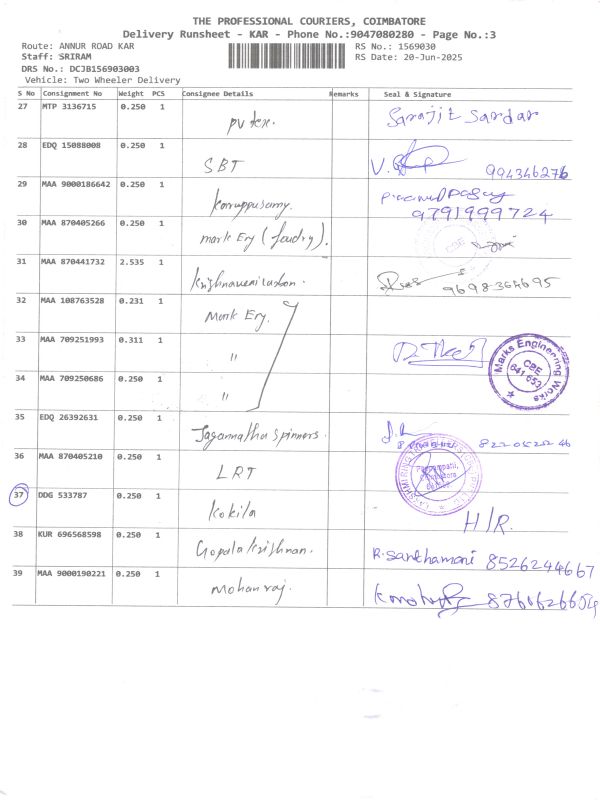 THE PROFESSIONAL COURIERS, COIMBATORE
Delivery Runsheet - KAR - Phone No.:9047080280 - Page No.:3
Route: ANNUR ROAD KAR
RS No.: 1569030
Staff: SRIRAM
RS Date: 20-Jun-2025
DRS No.: DCJB156903003
Vehicle: Two Wheeler Delivery
S No Consignment No Weight PCS Consignee Details Remarks Seal & Signature
27 MTP 3136715 0.250 1 PV tex. Sarajit Sardar
28 EDQ 15088008 0.250 1 SBT V. 994346276
29 MAA 9000186642 0.250 1 Karuppusamy. 9791999724
30 MAA 870405266 0.250 1 mark Eng (foudry). CBE
31 MAA 870441732 2.535 1 Krishnaveni carbon. 9698364695
32 MAA 108763528 0.231 1 Mark Eng.
33 MAA 709251993 0.311 1 " Marks Engineering Works CBE 641 653
34 MAA 709250686 0.250 1 "
35 EDQ 26392631 0.250 1 Jagannatha Spinners.
36 MAA 870405210 0.250 1 LRT
37 DDG 533787 0.250 1 Kokila H/R.
38 KUR 696568598 0.250 1 Gopala Krishnan. R. Santhamani 8526244667
39 MAA 9000190221 0.250 1 Mohanraj.